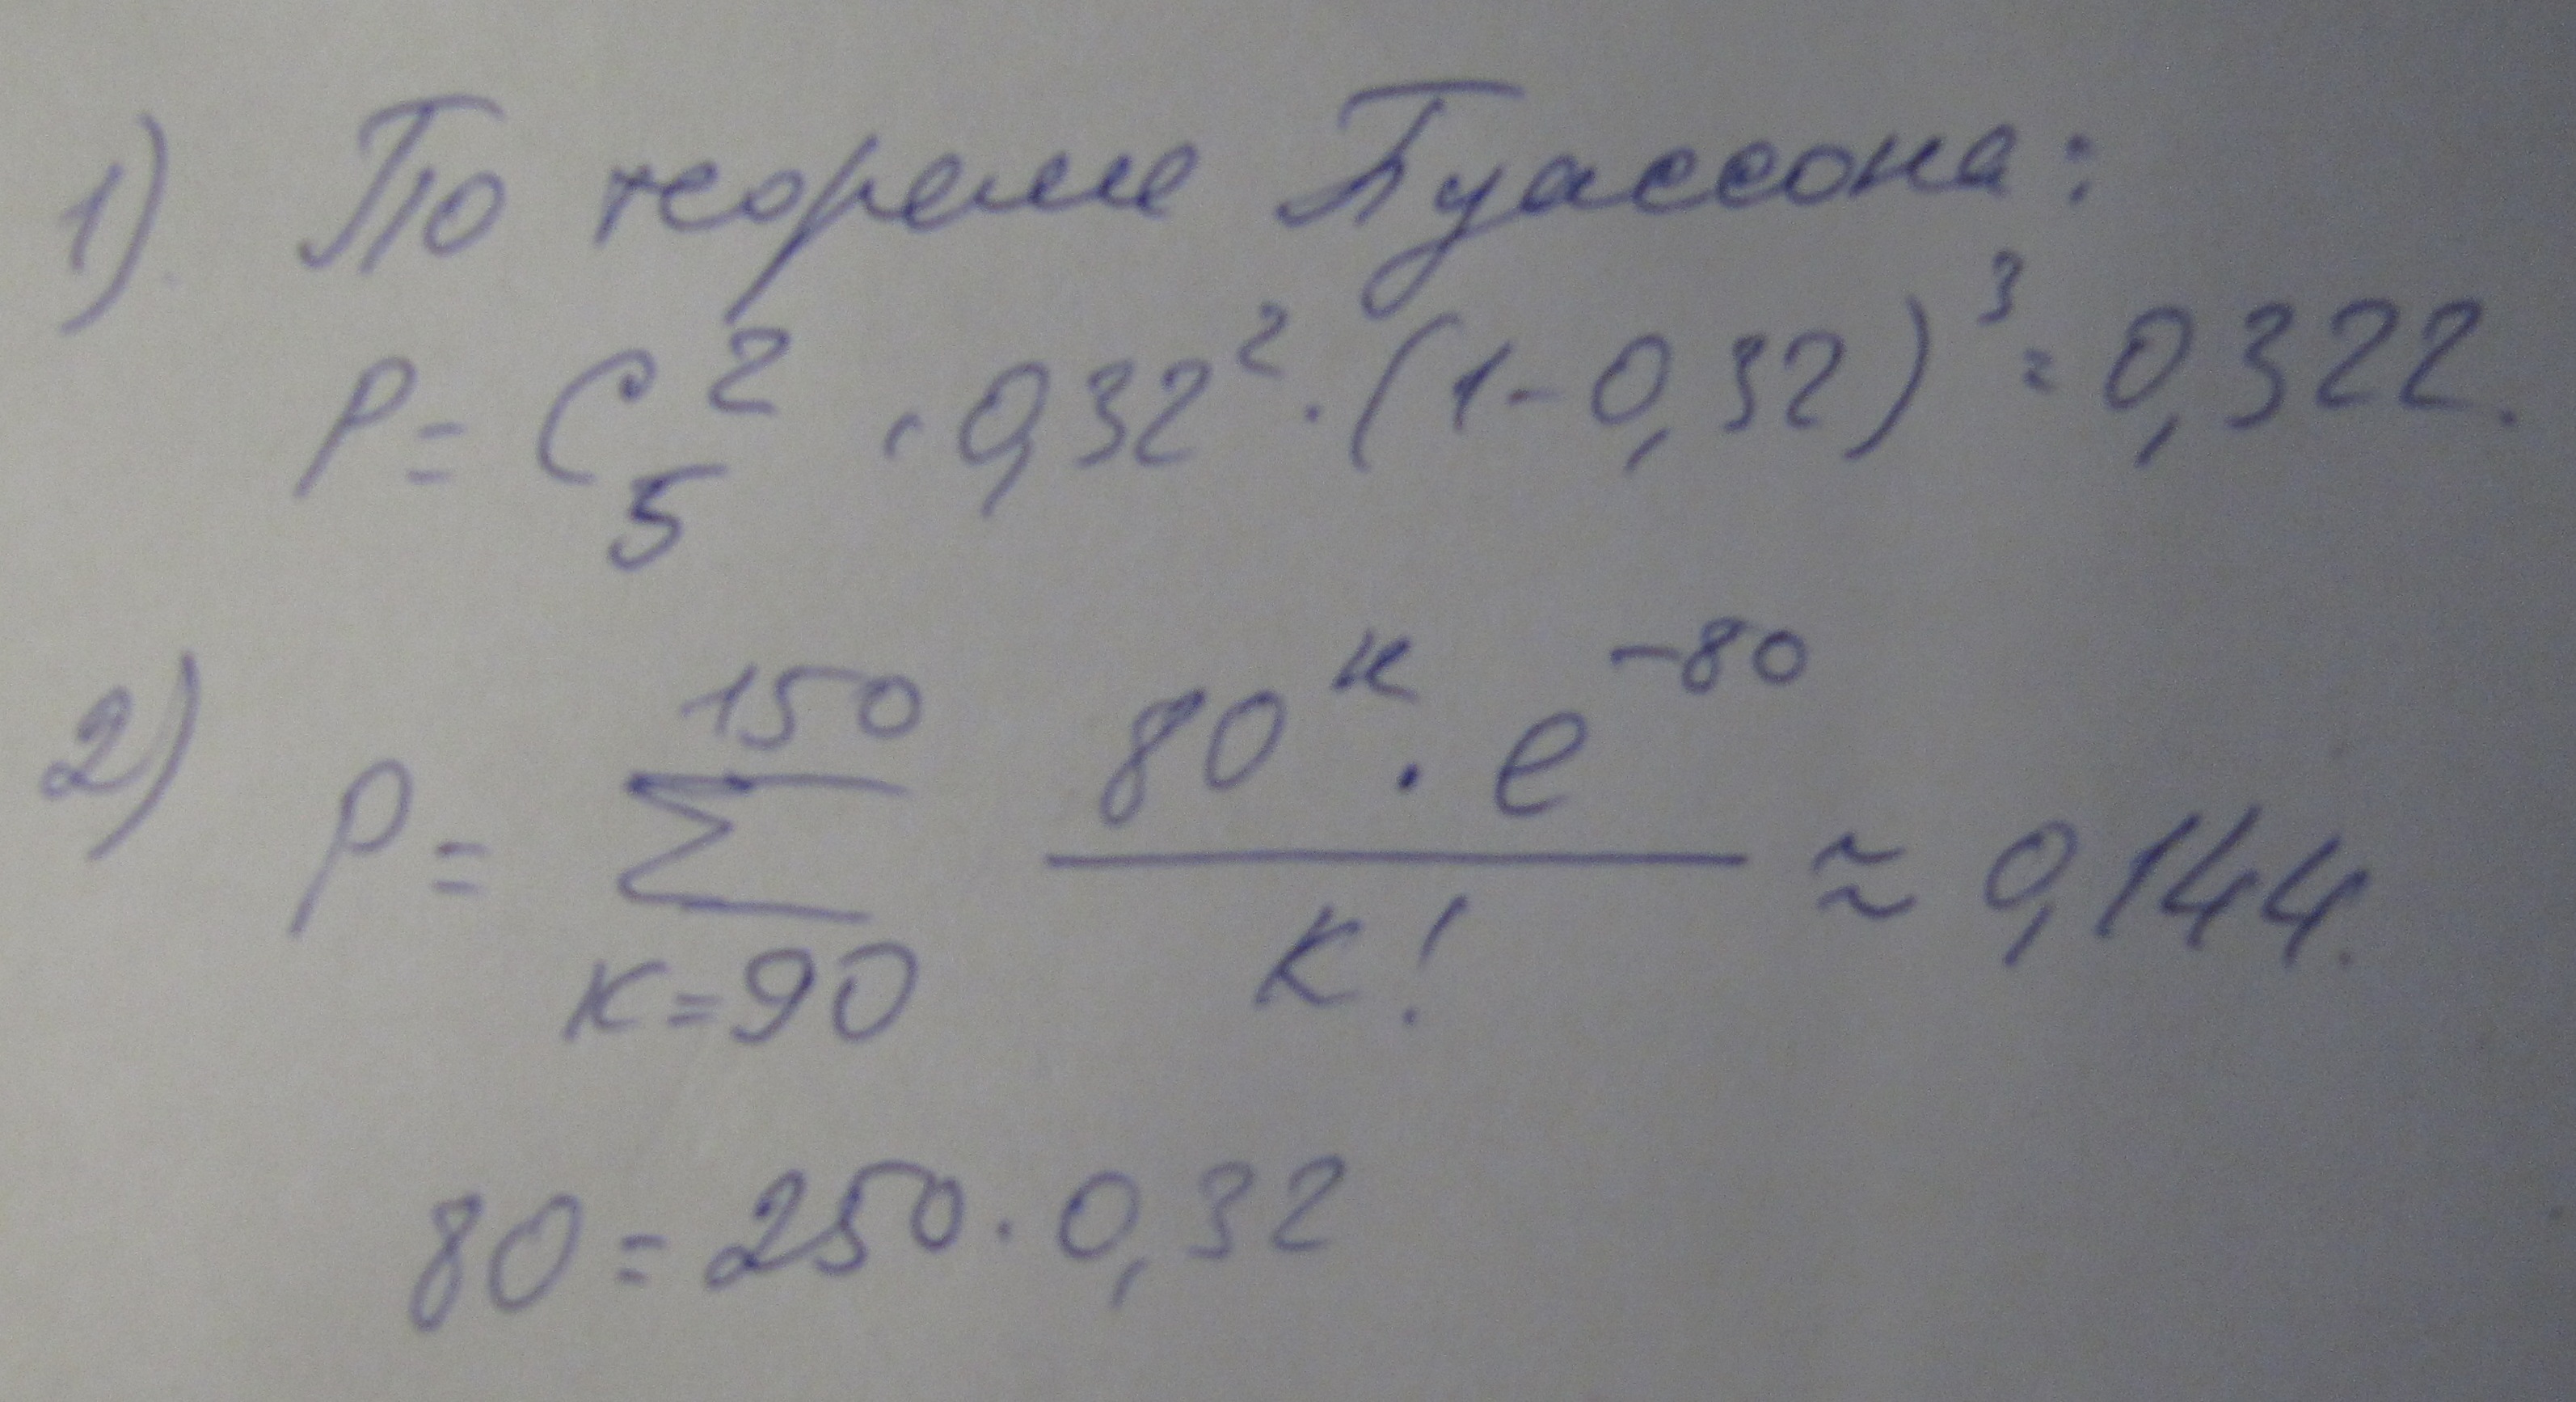 1). По теореме Пуассона:
P = C₅² · 0,32² · (1 - 0,32)³ = 0,322.
2) P = ∑ₖ₌₉₀¹⁵⁰ 80ᵏ · e⁻⁸⁰ / k! ≈ 0,144.
80 = 250 · 0,32